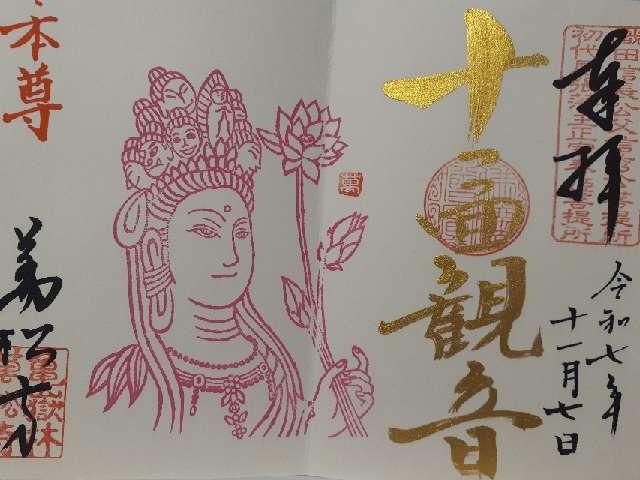 奉拝
織田信長公父信秀公菩提所
初代尾張藩主正室春姫菩提所
令和七年
十一月七日
十一面観音
萬
本尊
萬松寺
龜嶽林
萬松寺